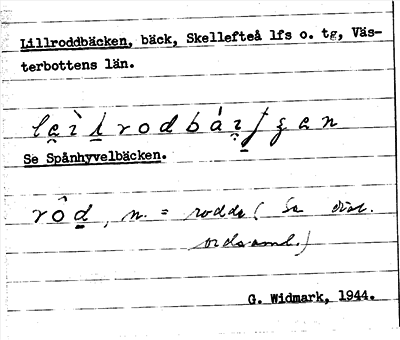 Lillroddbäcken, bäck, Skellefteå lfs o. tg, Väs-
terbottens län.
Se Spånhyvelbäcken.
n. = rodde (Se dial.
ordsaml.)
G. Widmark, 1944.